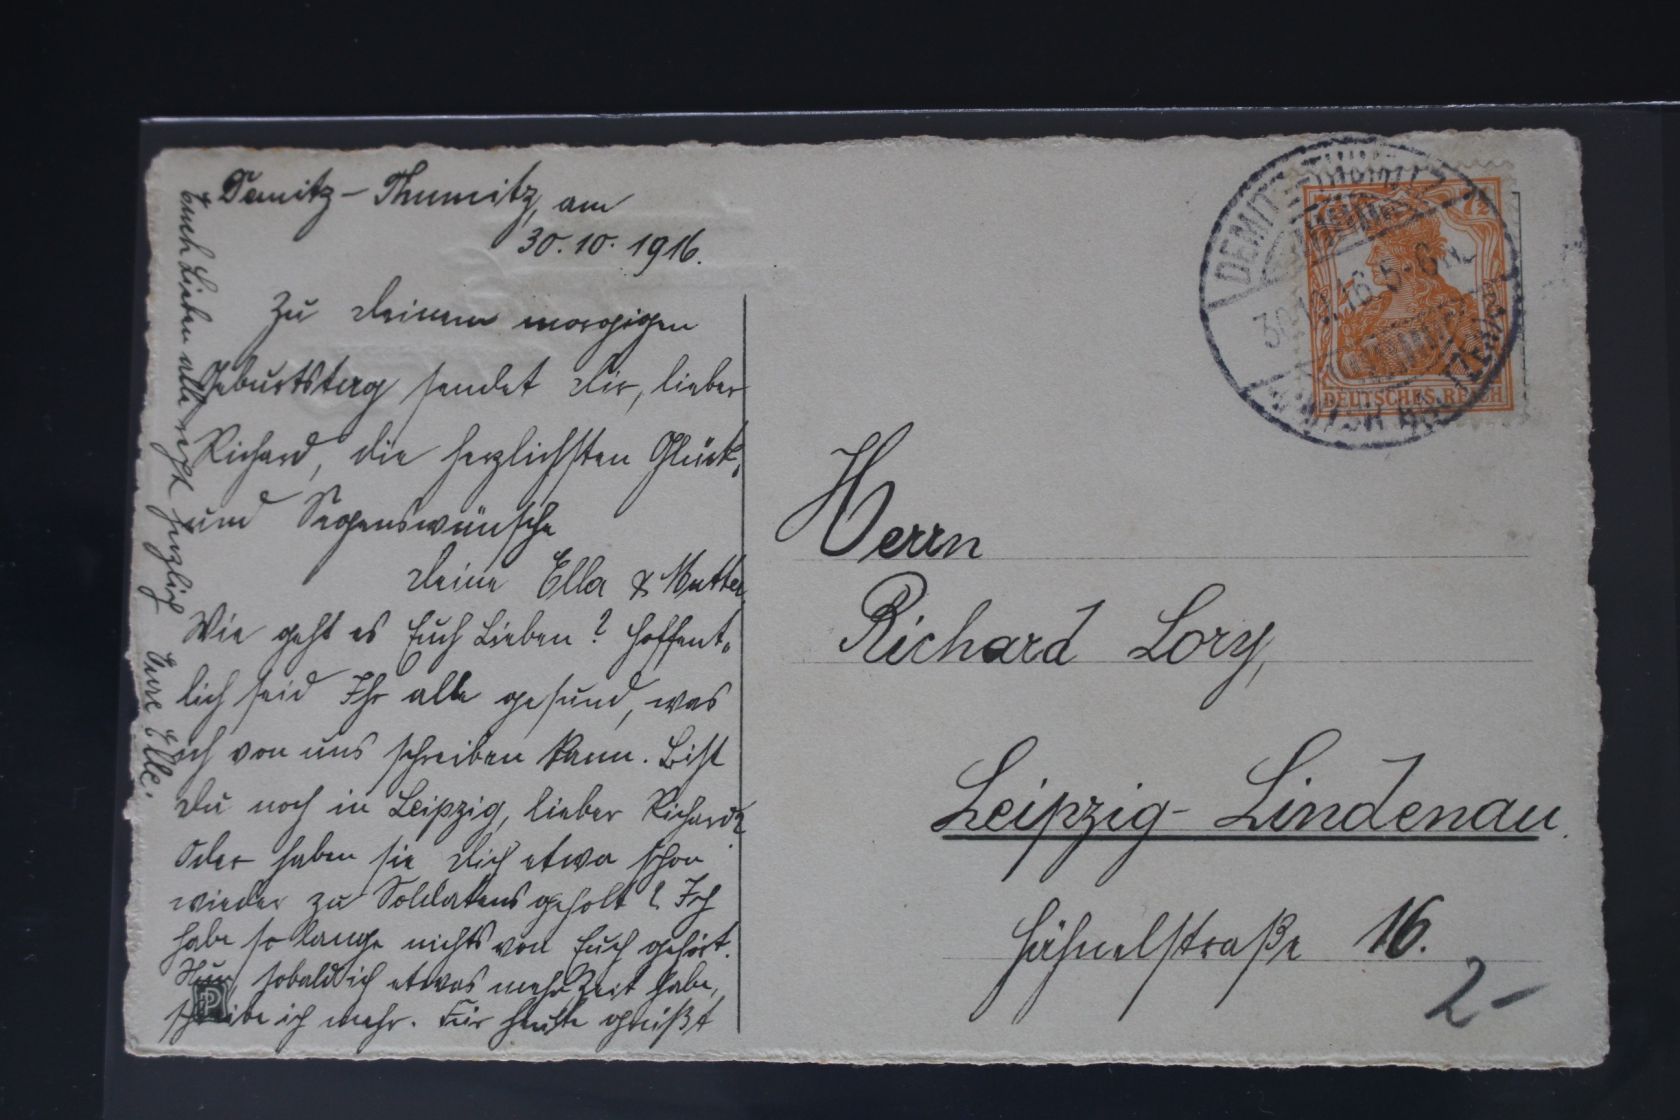 Demitz-Thumitz, am
30.10.1916.
Zu Deinem morgigen
Geburtstag sendet Dir, lieber
Richard, die herzlichsten Glück-
und Segenswünsche
Deine Ella & Mutter.
Wie geht es Euch Lieben? Hoffent-
lich seid Ihr alle gesund, was
ich von uns schreiben kann. Bist
Du noch in Leipzig, lieber Richard?
Oder haben sie Dich etwa schon
wieder zu Soldatens geholt? Ich
habe so lange nichts von Euch gehört.
Nun, sobald ich etwas mehr Zeit habe,
schreibe ich mehr. Für heute grüßt
Euch Lieben alle recht herzlich
Eure Elle.
DEMITZ-THUMITZ
30.10.16.5-6N.
7½
DEUTSCHES REICH
Herrn
Richard Lory,
Leipzig-Lindenau.
Hähnelstraße 16.
2-